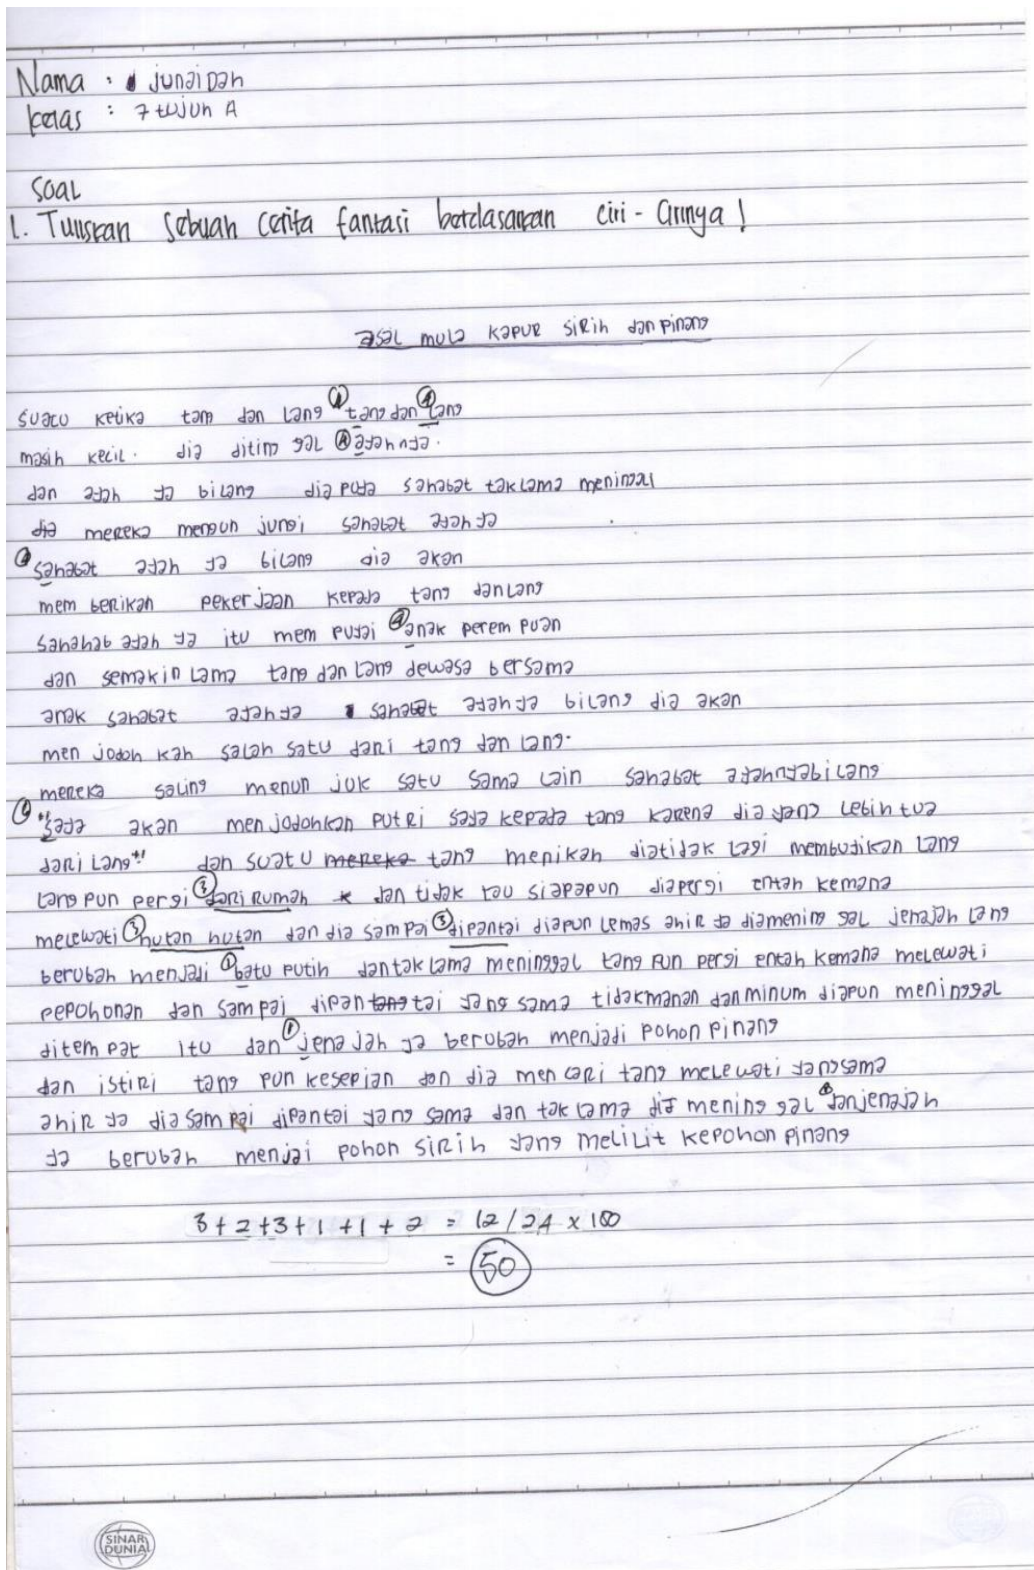 Nama : junaidah
kelas : 7 tujuh A
SOAL
1. Tuliskan sebuah cerita fantasi berdasarkan ciri - cirinya !
asal mula kapur sirih dan pinang
suatu ketika tam dan lang tang dan lang
masih kecil. dia diting gal ayahnya.
dan ayah ya bilang dia puya sahabat taklama meningal
dia mereka mengun jungi sahabat ayah ya
sahabat ayah ya bilang dia akan
mem berikan pekerjaan kepada tang danlang
sahahab ayah ya itu mem puyai anak perem puan
dan semakin lama tang dan lang dewasa bersama
anak sahabat ayahya sahabat ayahya bilang dia akan
men jodoh kah salah satu dari tang dan lang.
mereka saling menun juk satu sama lain sahabat ayahnyabilang
"saya akan men jodohkan putri saya kepada tang karena dia yang lebih tua
dari lang" dan suatu mereka tang menikah diatidak lagi membudikan lang
lang pun pergi dari rumah dan tidak tau siapapun diapergi entah kemana
melewati hutan hutan dan dia sampai dipantai diapun lemas ahir ya diamening gal jenajah lang
berubah menjadi batu putih dantak lama meninggal tang pun pergi entah kemana melewati
pepohonan dan sampai dipan tang tai yang sama tidakmanan danminum diapun meninggal
ditem pat itu dan jena jah ya berubah menjadi pohon pinang
dan istiri tang pun kesepian dan dia men cari tang melewati yangsama
ahir ya dia sampai dipantai yang sama dan tak lama dia mening gal danjenajah
ya berubah menjai pohon sirih yang melilit kepohon pinang
3 + 2 + 3 + 1 + 1 + 2 = 12 / 24 x 100
= 50
SINAR
DUNIA